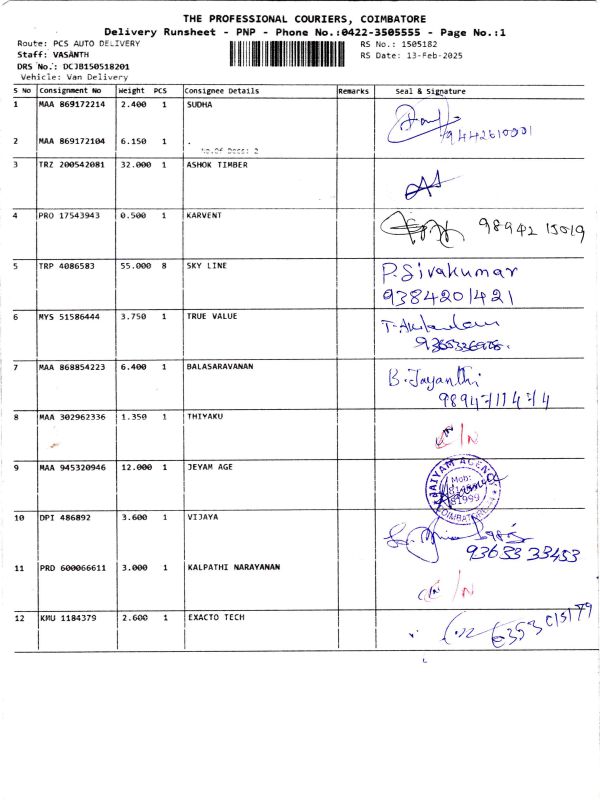 THE PROFESSIONAL COURIERS, COIMBATORE
Delivery Runsheet - PNP - Phone No.:0422-3505555 - Page No.:1
Route: PCS AUTO DELIVERY RS No.: 1505182
Staff: VASANTH RS Date: 13-Feb-2025
DRS No.: DCJB150518201
Vehicle: Van Delivery
S No Consignment No Weight PCS Consignee Details Remarks Seal & Signature
1 MAA 869172214 2.400 1 SUDHA
9442610001
2 MAA 869172104 6.150 1 .
No.Of Docs: 2
3 TRZ 200542081 32.000 1 ASHOK TIMBER
4 PRO 17543943 0.500 1 KARVENT 98942 15019
5 TRP 4086583 55.000 8 SKY LINE P.Sivakumar
9384201421
6 MYS 51586444 3.750 1 TRUE VALUE
7 MAA 868854223 6.400 1 BALASARAVANAN B.Jayanthi
9894711474
8 MAA 302962336 1.350 1 THIYAKU C/N
9 MAA 945320946 12.000 1 JEYAM AGE
Mob:
COIMBATORE
10 DPI 486892 3.600 1 VIJAYA
93633 33453
11 PRD 600066611 3.000 1 KALPATHI NARAYANAN C/N
12 KMU 1184379 2.600 1 EXACTO TECH